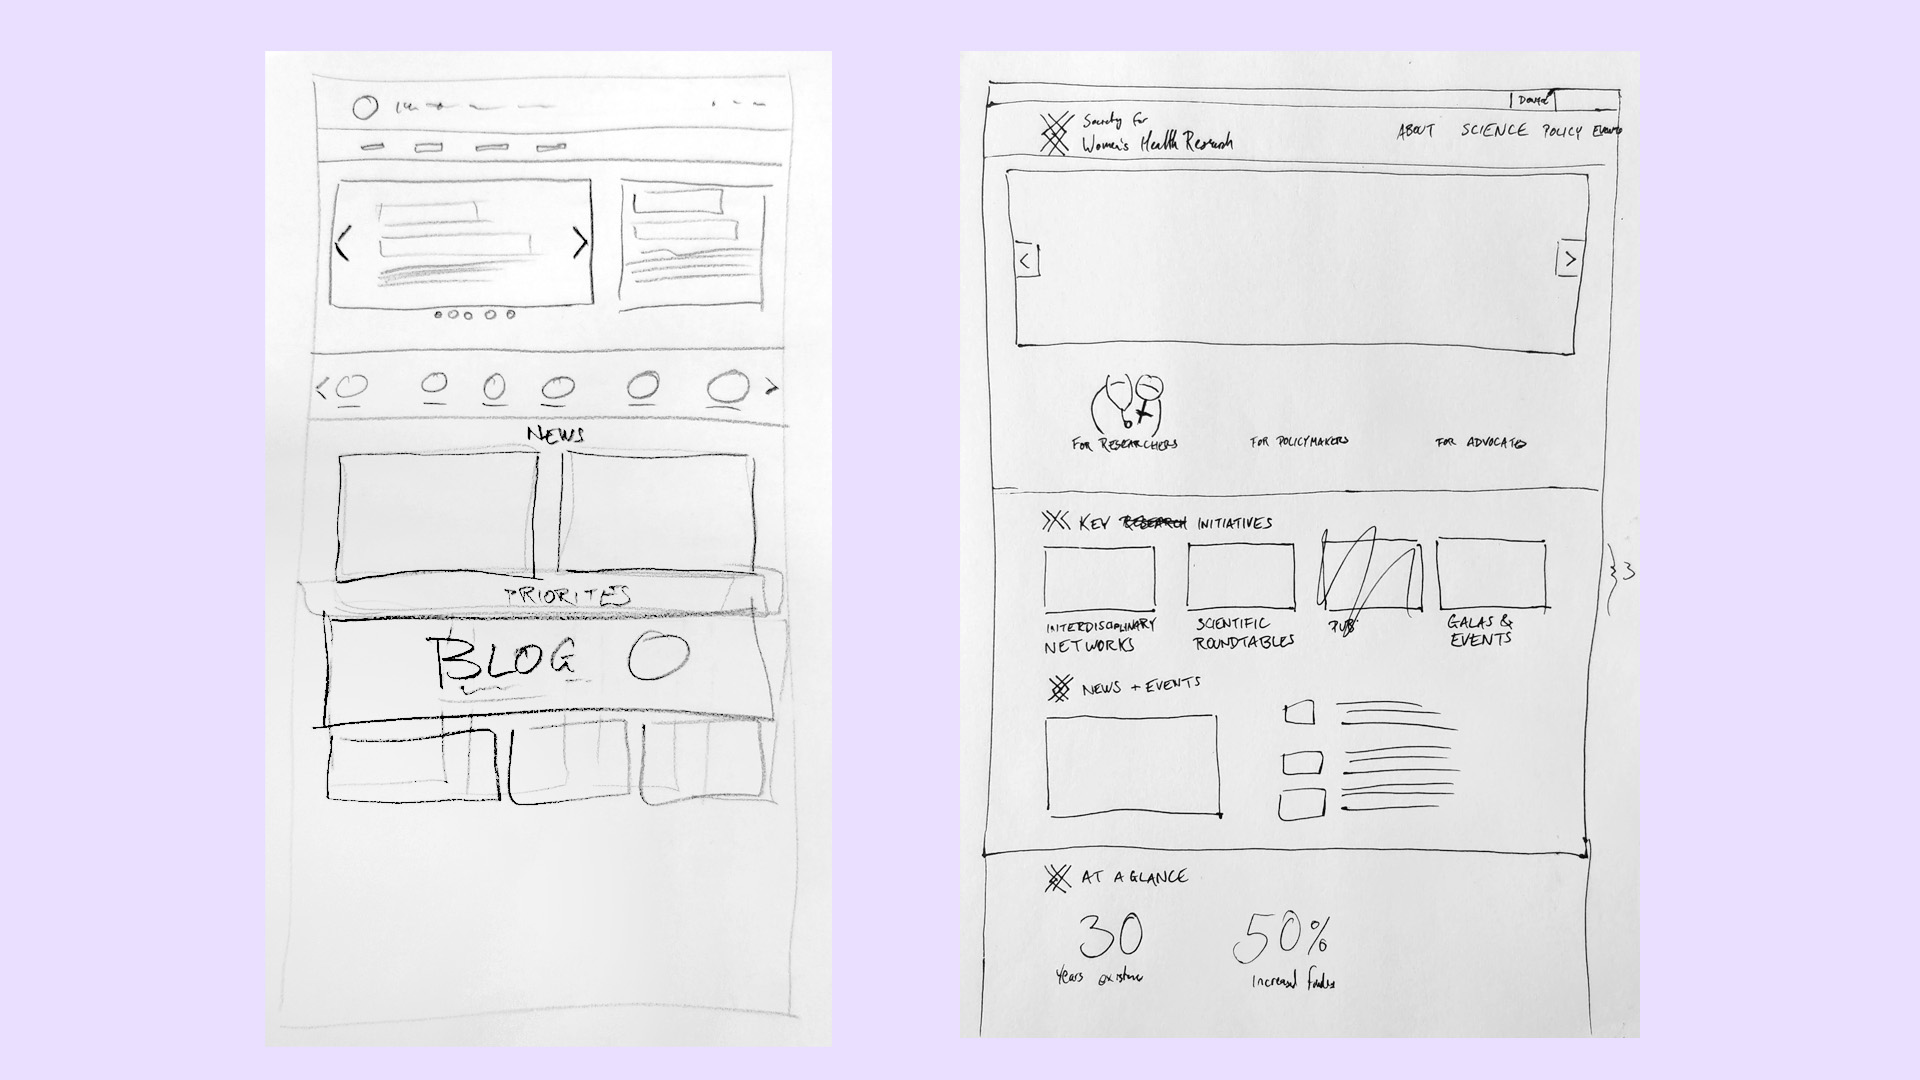 NEWS
PRIORITES
BLOG
Donate
Society for
Women's Health Research
ABOUT SCIENCE POLICY Events
FOR RESEARCHERS
FOR POLICYMAKERS
FOR ADVOCATES
KEY RESEARCH INITIATIVES
INTERDISCIPLINARY
NETWORKS
SCIENTIFIC
ROUNDTABLES
PUB
GALAS &
EVENTS
3
NEWS + EVENTS
AT A GLANCE
30
Years existence
50%
Increased